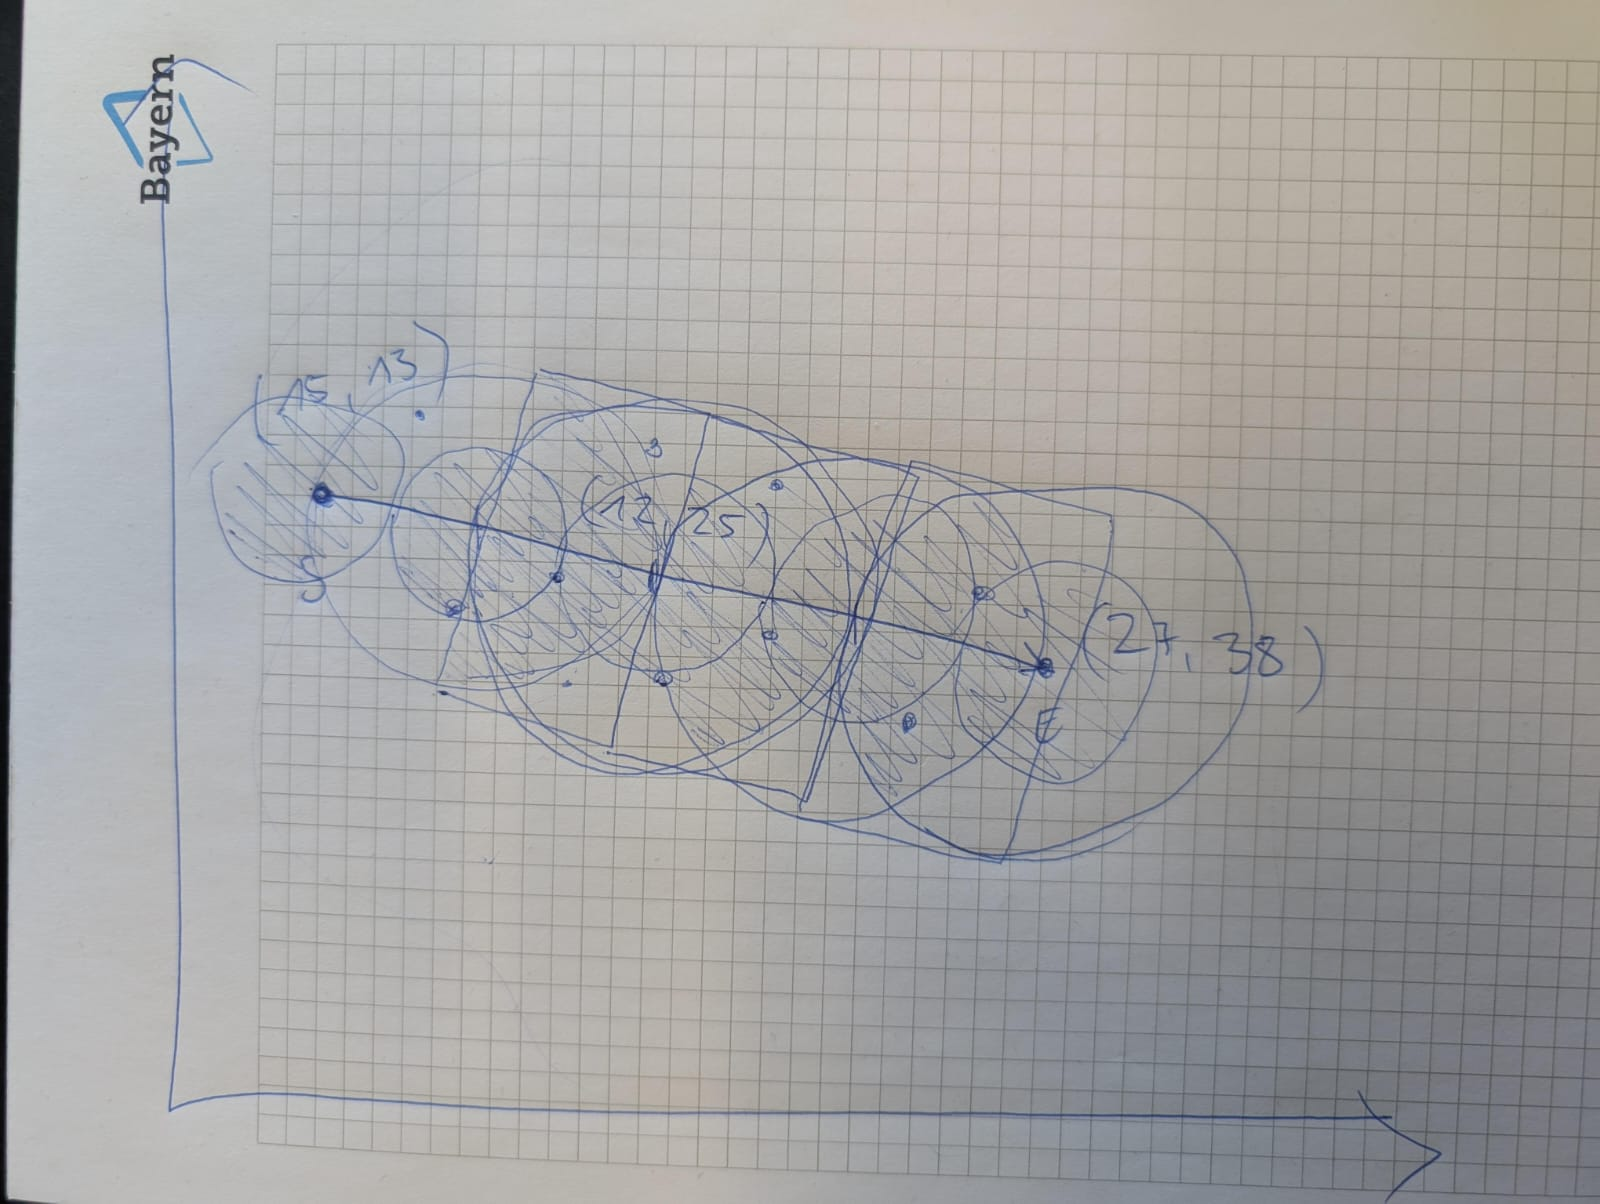 Bayern
(15, 13)
S
3
(12, 25)
(27, 38)
E